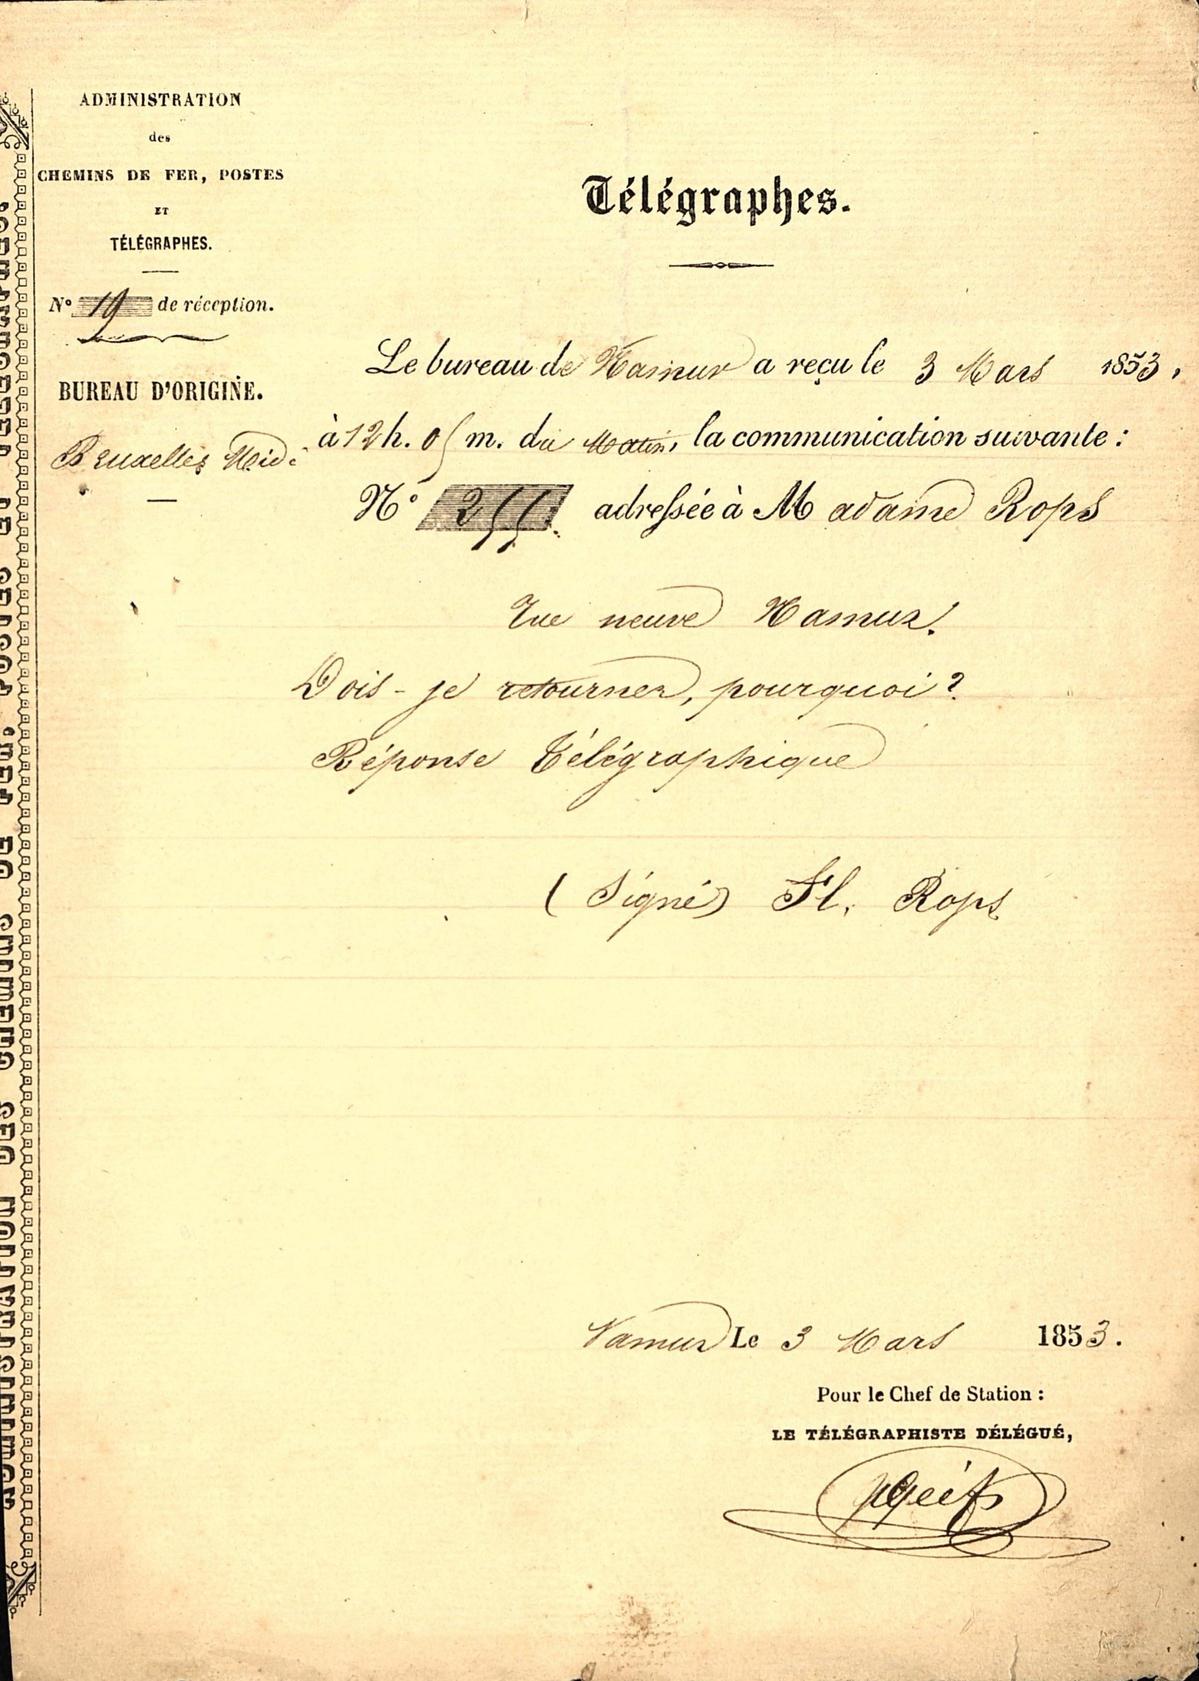 ADMINISTRATION
des
CHEMINS DE FER, POSTES
ET
TÉLÉGRAPHES.
N° 19 de réception.
BUREAU D'ORIGINE.
Bruxelles Midi
Télégraphes.
Le bureau de Namur a reçu le 3 Mars 1853,
à 12 h. 05 m. du Matin, la communication suivante :
N° 255. adressée à Madame Rops
Rue neuve Namur.
Dois-je retourner, pourquoi ?
Réponse Télégraphique
(Signé) Fl. Rops
Namur Le 3 Mars 1853.
Pour le Chef de Station :
LE TÉLÉGRAPHISTE DÉLÉGUÉ,